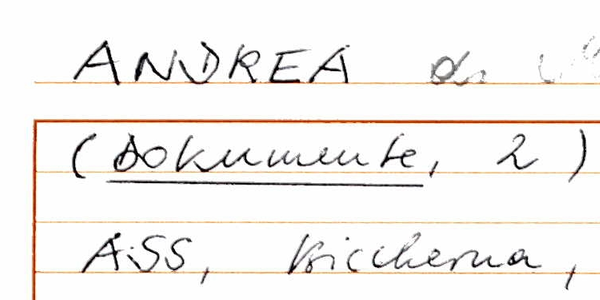 ANDREA di
(Dokumente, 2)
ASS, Biccherna,